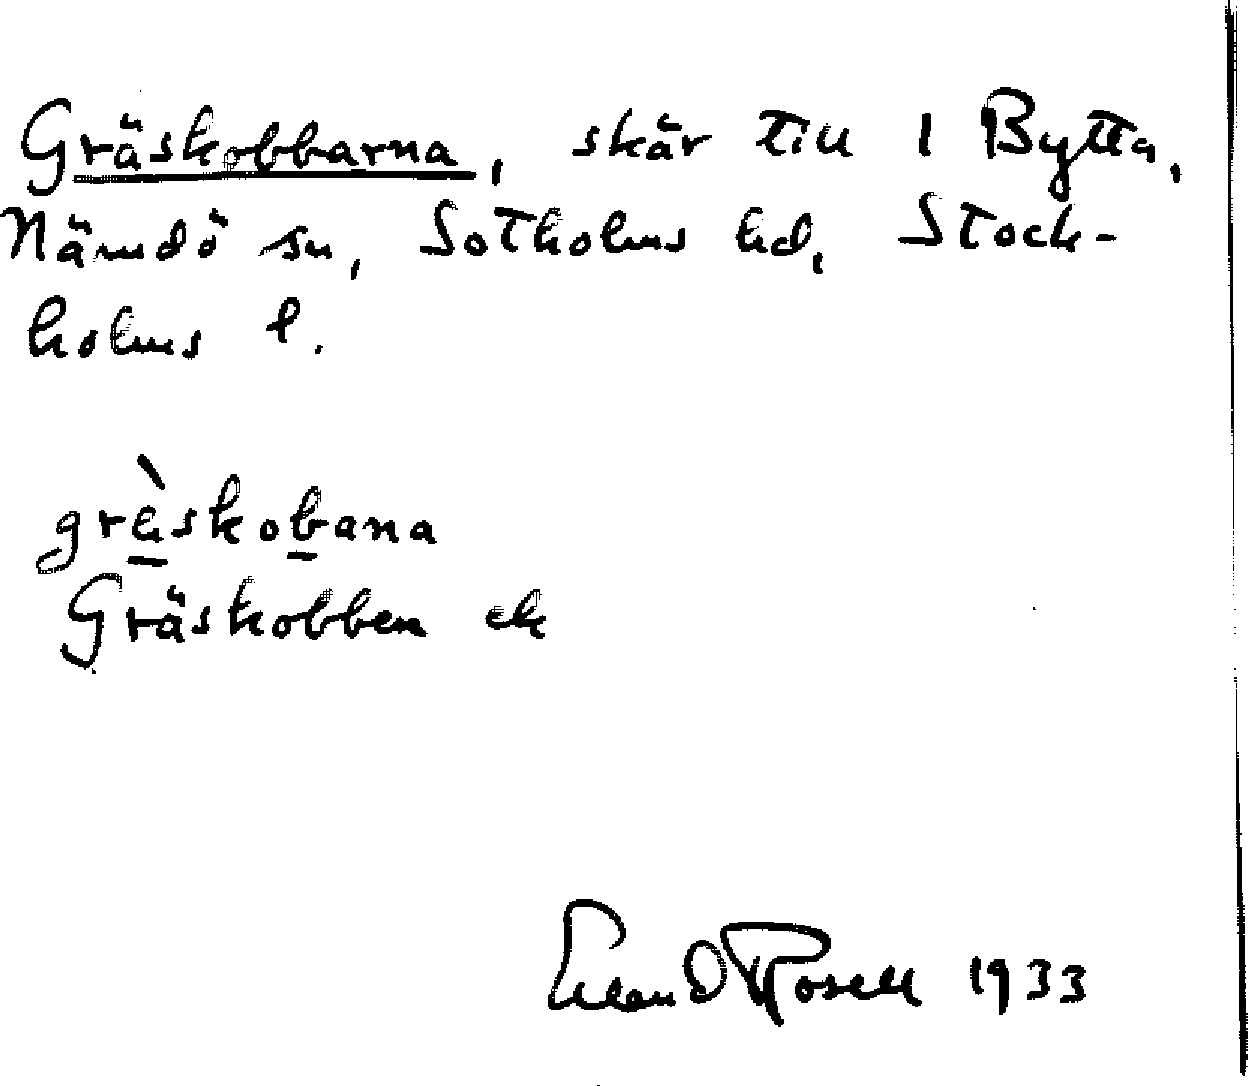 Gräskobbarna, skär till 1 Bytta,
Nämdö sn, Sotholms hd, Stock-
holms l.
grèskobana
Gräskobben ek
Erland Rosell 1933